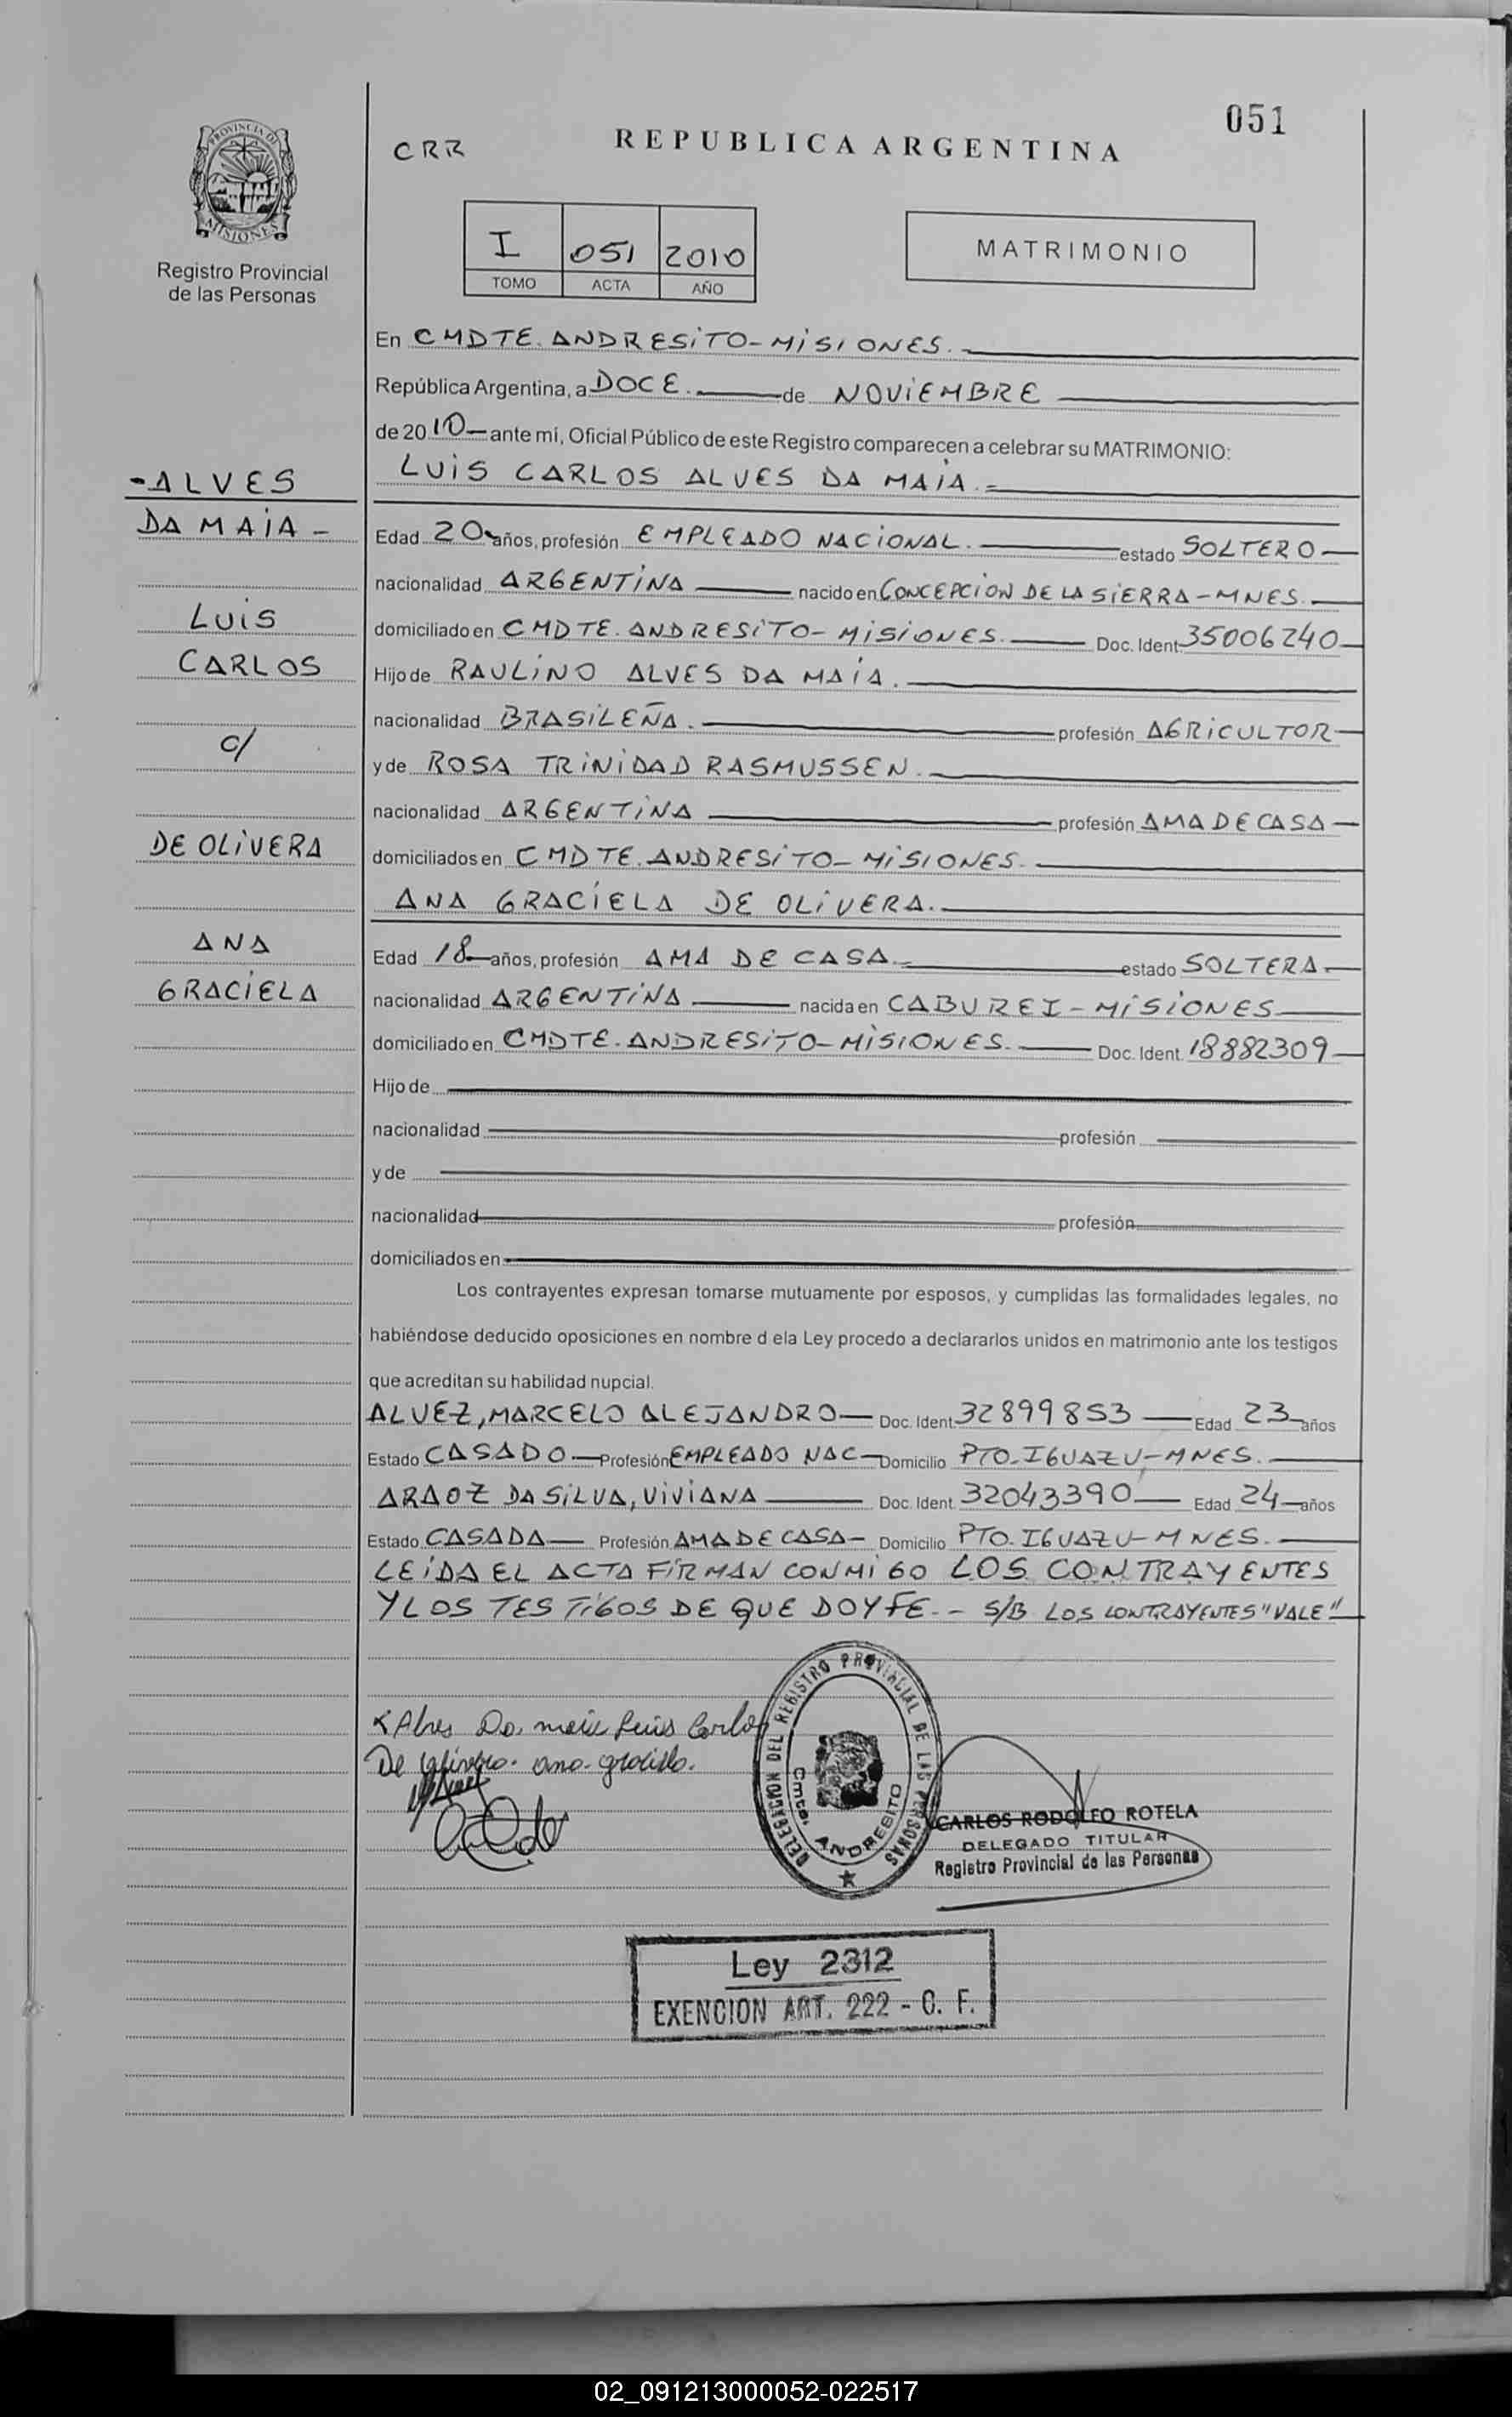 051
CRR
REPUBLICA ARGENTINA
PROVINCIA DE MISIONES
Registro Provincial
de las Personas
I 051 2010
TOMO ACTA AÑO
MATRIMONIO
En CMDTE. ANDRESITO - MISIONES.
República Argentina, a DOCE. de NOVIEMBRE
de 2010 ante mí, Oficial Público de este Registro comparecen a celebrar su MATRIMONIO:
LUIS CARLOS ALVES DA MAIA.
-ALVES
DA MAIA -
LUIS
CARLOS
c/
DE OLIVERA
ANA
GRACIELA
Edad 20 años, profesión EMPLEADO NACIONAL. estado SOLTERO
nacionalidad ARGENTINA nacido en CONCEPCION DE LA SIERRA - MNES.
domiciliado en CMDTE. ANDRESITO - MISIONES. Doc. Ident. 35006240
Hijo de RAULINO ALVES DA MAIA.
nacionalidad BRASILEÑA. profesión AGRICULTOR
y de ROSA TRINIDAD RASMUSSEN.
nacionalidad ARGENTINA profesión AMA DE CASA
domiciliados en CMDTE. ANDRESITO - MISIONES.
ANA GRACIELA DE OLIVERA.
Edad 18 años, profesión AMA DE CASA. estado SOLTERA
nacionalidad ARGENTINA nacida en CABUREI - MISIONES
domiciliado en CMDTE. ANDRESITO - MISIONES. Doc. Ident. 18882309
Hijo de
nacionalidad profesión
y de
nacionalidad profesión
domiciliados en
Los contrayentes expresan tomarse mutuamente por esposos, y cumplidas las formalidades legales, no
habiéndose deducido oposiciones en nombre d ela Ley procedo a declararlos unidos en matrimonio ante los testigos
que acreditan su habilidad nupcial.
ALVEZ, MARCELO ALEJANDRO Doc. Ident. 32899853 Edad 23 años
Estado CASADO Profesión EMPLEADO NAC Domicilio PTO. IGUAZU - MNES.
ARAOZ DA SILVA, VIVIANA Doc. Ident. 32043390 Edad 24 años
Estado CASADA Profesión AMA DE CASA Domicilio PTO. IGUAZU - MNES.
LEIDA EL ACTA FIRMAN CONMIGO LOS CONTRAYENTES
Y LOS TESTIGOS DE QUE DOY FE. - S/B LOS CONTRAYENTES "VALE"
Luis Carlos
De
DELEGACION DEL REGISTRO PROVINCIAL DE LAS PERSONAS
Cmte. ANDRESITO
CARLOS RODOLFO ROTELA
DELEGADO TITULAR
Registro Provincial de las Personas
Ley 2312
EXENCION ART. 222 - C. F.
02_091213000052-022517